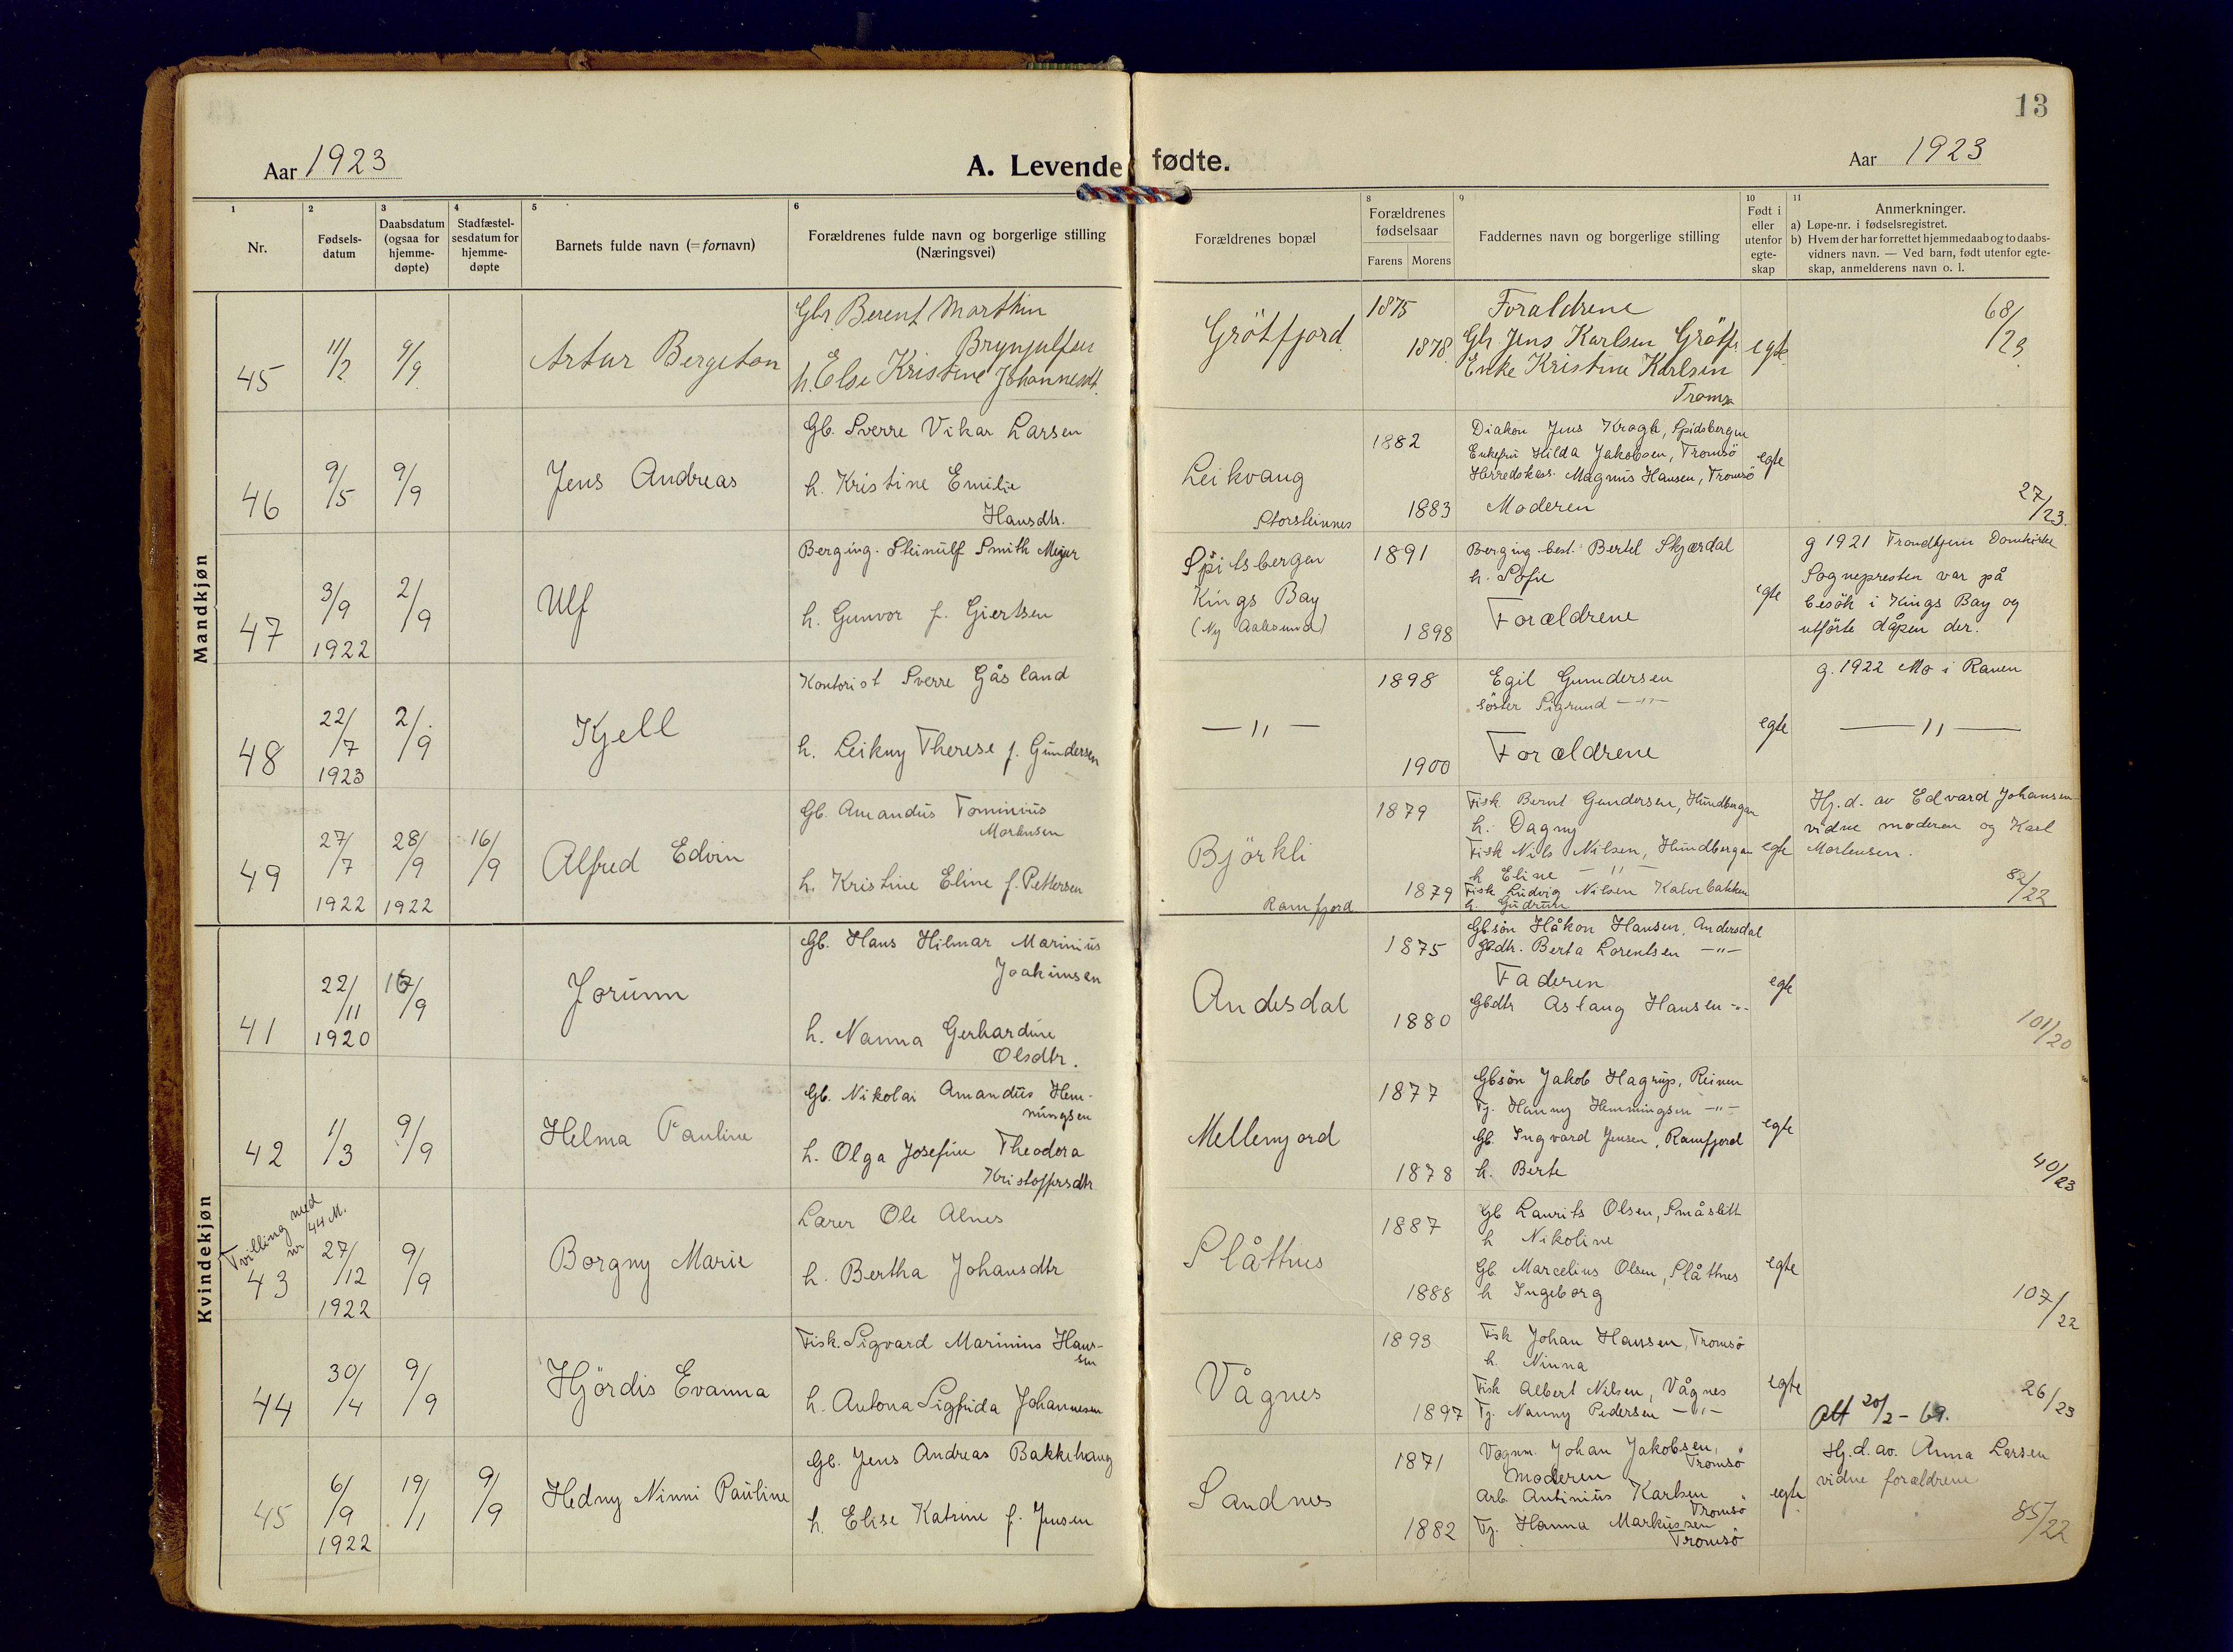 13
Aar 1923
A. Levende fødte.
Aar 1923
1
Nr.
2
Fødsels-
datum
3
Daabsdatum
(ogsaa for
hjemme-
døpte)
4
Stadfæstel-
sesdatum for
hjemme-
døpte
5
Barnets fulde navn (= fornavn)
6
Forældrenes fulde navn og borgerlige stilling
(Næringsvei)
Forældrenes bopæl
8
Forældrenes
fødselsaar
Farens Morens
9
Faddernes navn og borgerlige stilling
10
Født i
eller
utenfor
egte-
skap
11
Anmerkninger.
a) Løpe-nr. i fødselsregistret.
b) Hvem der har forrettet hjemmedaab og to daabs-
vidners navn. — Ved barn, født utenfor egte-
skap, anmelderens navn o. l.
Mandkjøn
45
11/2
9/9
Artur Bergeton
Gbr. Berent Marthin
Brynjulfsen
h. Else Kristine Johannesdt.
Grötfjord
1875
1878
Forældrene
Gbr. Jens Karlsen Grötfj.
Enke Kristine Karlsen
Tromsø
egte
68/23
46
9/5
9/9
Jens Andreas
Gb. Sverre Vikar Larsen
h. Kristine Emilie
Hansdtr.
Leikvang
Storsteinnes
1882
1883
Diakon Jens Kragh, Spidsbergen
Enkefru Hilda Jakobsen, Tromsö
Herredskass. Magnus Hansen, Tromsö
Moderen
egte
27/23.
47
3/9
1922
2/9
Ulf
Berging. Steinulf Smith Meyer
h. Gunvor f. Giertsen
Spitsbergen
Kings Bay
(Ny Aalesund)
1891
1898
Berging. best. Bertel Skjærdal
h. Sofie
Forældrene
egte
g 1921 Trondhjem Domkirke
Sognepresten var på
besök i Kings Bay og
utförte dåpen der.
48
22/7
1923
2/9
Kjell
Kontorist Sverre Gåsland
h. Leikny Therese f. Gundersen
— " —
1898
1900
Egil Gundersen
söster Sigrund — " —
Forældrene
egte
g. 1922 Mo i Ranen
— " —
49
27/7
1922
28/9
1922
16/9
Alfred Edvin
Gb. Amandus Tominius
Mortensen
h. Kristine Eline f. Pettersen
Björkli
Ramfjord
1879
1879
Fisk Bernt Gundersen, Hundbergan
h. Dagny
Fisk Nils Nilsen, Hundbergan
h Eline — " —
Fisk Ludvig Nilsen Kalvebakken
h. Gudrun
egte
Hj.d. av Edvard Johansen
vidne moderen og Karl
Mortensen.
82/22
Kvindekjøn
41
22/11
1920
16/9
Jorunn
Gb. Hans Hilmar Marinius
Joakimsen
h. Nanna Gerhardine
Olsdtr.
Andesdal
1875
1880
Gbsön Håkon Hansen, Andersdal
Gbdtr. Berta Lorentsen — " —
Faderen
Gbdtr Aslaug Hansen - " -
egte
101/20
42
1/3
9/9
Helma Pauline
Gb. Nikolai Amandus Hem-
mingsen
h. Olga Josefine Theodora
Kristoffersdtr
Mellemjord
1877
1878
Gbsön Jakob Hagrup, Reinen
Tj. Hanny Hemmingsen — " —
Gb. Ingvard Jensen, Ramfjord
h. Berte
egte
40/23
Tvilling med
nr 44 M.
43
27/12
1922
9/9
Borgny Marie
Lærer Ole Alnes
h. Bertha Johansdtr
Slåttnes
1887
1888
Gb Laurits Olsen, Småslett
h Nikoline
Gb. Marcelius Olsen, Slåttnes
h Ingeborg
egte
107/22
44
30/4
9/9
Hjördis Evanna
Fisk. Sigvard Marinius Hans-
sen
h. Antona Sigfrida Johannesen
Vågnes
1893
1897
Fisk Johan Hansen, Tromsö
h. Ninna
Fisk Albert Nilsen, Vågnes
Tj. Nanny Pedersen — " —
egte
26/23
Att 20/2 - 69.
45
6/9
1922
19/1
9/9
Hedny Ninni Pauline
Gb. Jens Andreas Bakkehaug
h. Elise Katrine f. Jensen
Sandnes
1871
1882
Vognm. Johan Jakobsen,
Tromsö
Moderen
Arb. Antinius Karlsen
Tromsö
Tj. Hanna Markussen
Tromsö
egte
Hj.d. av. Anna Larsen
vidne forældrene
85/22